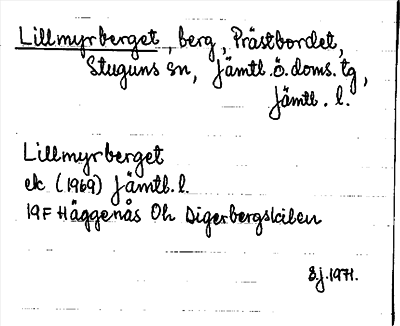 Lillmyrberget, berg, Prästbordet,
Stuguns sn, Jämtl. ö. doms. tg,
Jämtl. l.
Lillmyrberget
ek (1969) Jämtl. l.
19F Häggenås Öh Digerbergskilen
S.J. 1971.